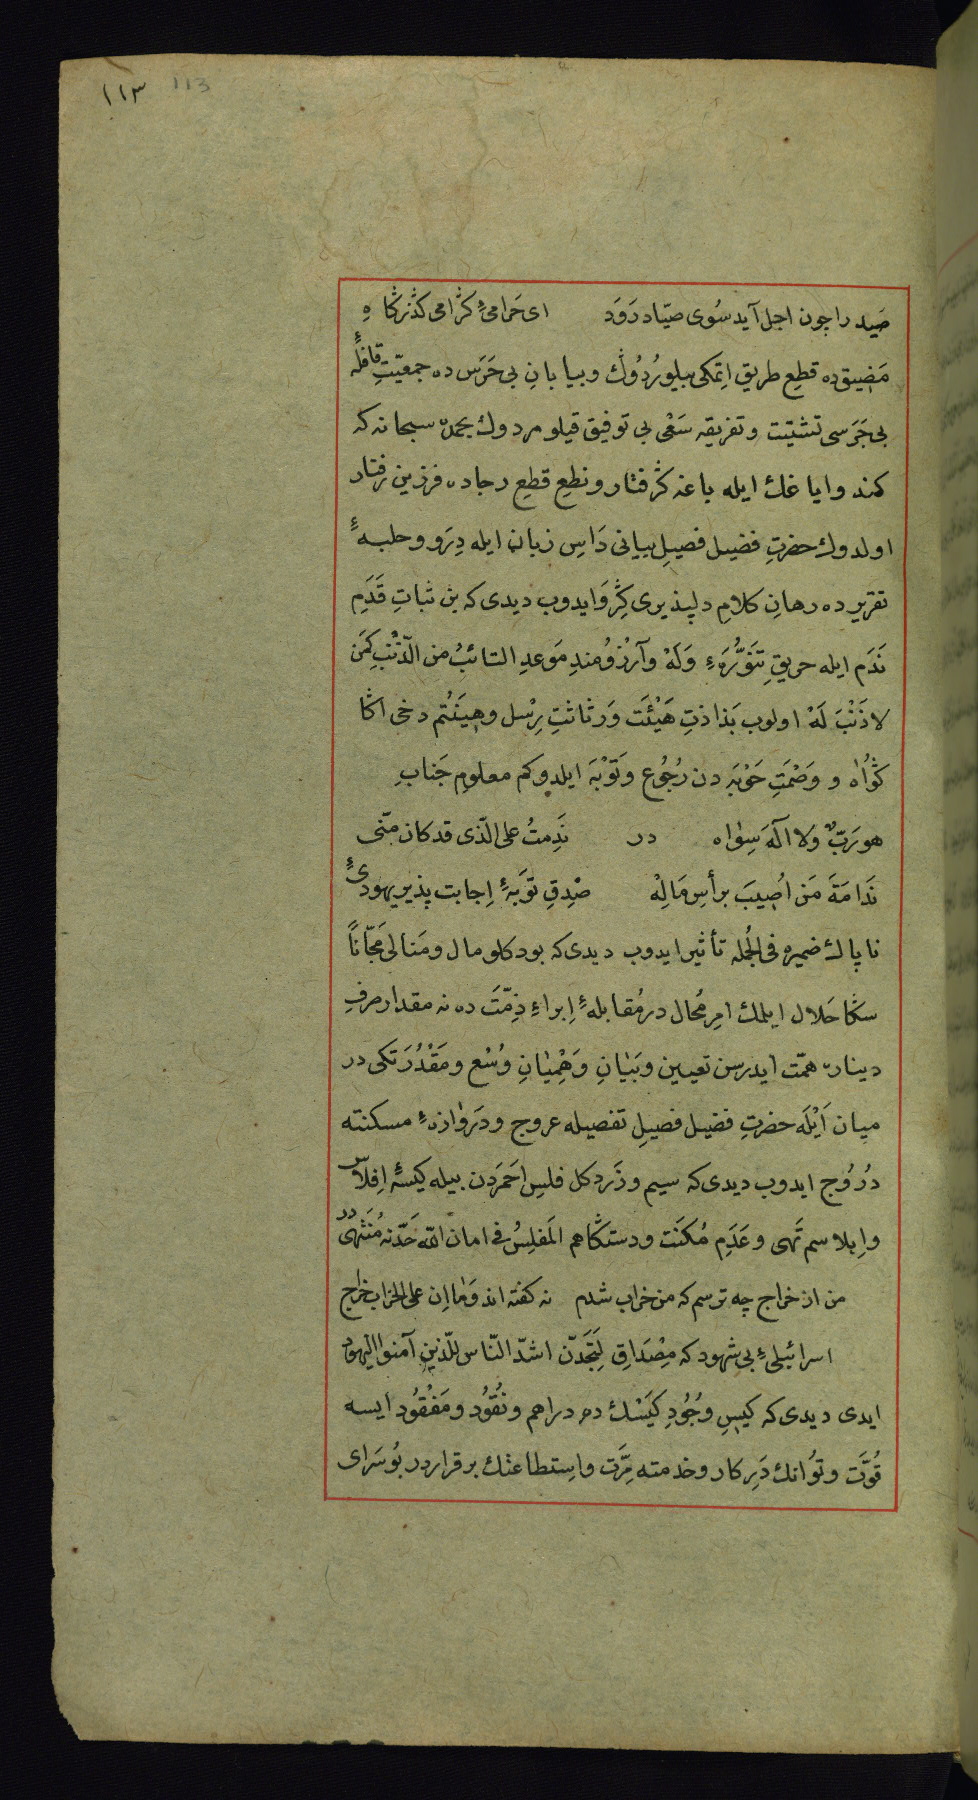 ١١٣ 113
صَید را چون اجل آید سُوی صیّاد رَوَد ای حَرامیءِ کژامی کذرکاهِ
مَضِیق‌ده قطعِ طریق اِتمکی بیلیوردُوڭ وبیابانِ بی حَرَس ده جمعیّتِ قافلهٔ
بی جَرَسی تشتیت وتفریقه سَعْی بی توفیق قیلو مردوك بحمده سبحانه که
کمند وایاغك ایله باغه کرفتار ونطعِ قطعِ رجاده فرزین رفتار
اولدوك حضرتِ فضیل فصیلِ بیانی دَاسِ زبان ایله دِرَو وحلبهٔ
تقریرده رهانِ کلامِ دلپذیری کِرَو ایدوب دیدی که بن ثباتِ قَدَمِ
نَدَم ایله حریقِ تَنَوُّرهءِ وَلَهْ وآرزُومندِ مَوعدِ التائبُ من الذَّنْبِ کَمَن
لاذَنْبَ لَهْ اولوب بَذاذتِ هَیْئَت وَرثاثتِ بِرْسل وهیَئتم دخی اکا
کواه و وَصْمَتِ حَوْبَه دن رُجُوع وتَوْبَه ایلدوکم معلومِ جَنابِ
هو رَبٌّ ولا الٰهَ سِوٰاه در نَدِمتُ علی الّذی قد کان منّی
نَدَامَةَ مَن اُصِیبَ برأسِ مَالِهْ صْدِقِ تَوْبَهٔ اِجابت پذیر یهودیٔ
ناپاك ضمیره فی الجُمله تأثیر ایدوب دیدی که بو دکلو مال ومَنالی مَجّاناً
سکا حَلال ایلمك امرِ مُحال در مُقابلهٔ اِبراءِ ذِمّتَ ده نه مقدار صرفِ
دیناره همّت ایدرسن تعیین وبَیٰانِ وَهِمْیٰانِ وُسْع ومَقْدُرَتکی در
میان اَیْلَه حضرتِ فضیل فصیلِ تفصیله عروج ودَروٰازهءِ مسکنته
دُرُوج ایدوب دیدی که سیم وزَرد کل فلسِ اَحمَردن بیله کیسهٔ اِفلاس
واِبلاسم تَهی وعَدَمِ مُکنَت ودستکاهم المَفلِسُ فی امان الله حَدّنه مُنتَهی در
من از خراج چه ترسم که من خراب شدم نه کفته اند وَمٰا اِن علی الخراب خراج
اسرائیلیءِ بی شهود که مِصْدَاقِ لَتَجِدَنّ اشدّ النّاس للّذین آمنوا الیهود
ایدی دیدی که کیسِ وجُودِ کیَسَك ده دراهم ونُقُود ومَفْقُود ایسه
قُوَّت وتوُانك دَرِ کار وخدمته مِرَّت واستطاعتك برقرار در بو سَرای